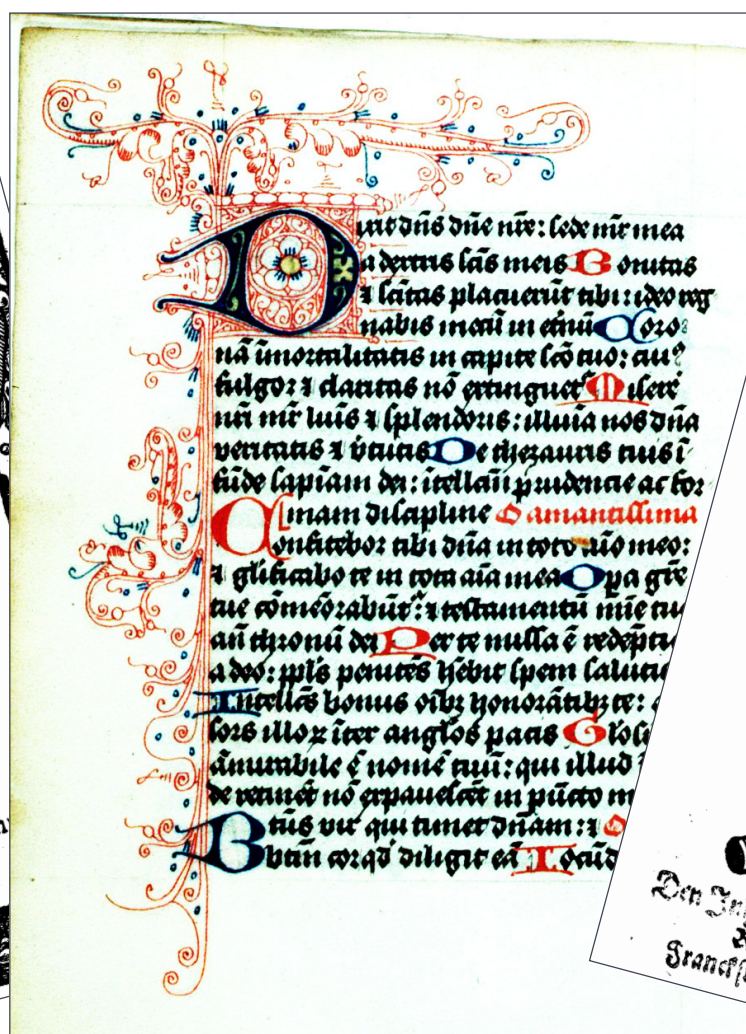 Dixit dn̄s dn̄e nr̄e: sede mr̄ mea
a dextris sc̄is meis Bonitas
⁊ sc̄itas placuerūt tibi: ideo reg
nabis mecū in etnū Coro
nā īmortalitatis in capite sc̄o tuo: cuiꝰ
fulgor ⁊ claritas nō extinguet᷑ Misere
nr̄i mr̄ luīs ⁊ splendoris: illuīa nos dn̄a
veritatis ⁊ v̄tutis De thezauris tuis ī
fūde sapīam dei: ītellc̄ū prudencie ac for
mam discipline O amantissima
Confitebor tibi dn̄a in toto aīo meo:
⁊ gl̄ificabo te in tota aīa mea Opa gr̄e
tue cōmēorabūt᷑: ⁊ testamentū mīe tu
an̄ thronū dei Per te missa ē redēpti
a deo: ppl̄s penitēs hēbit spem saluti
Intellc̄s bonus oībꝫ honorātibꝫ te:
sors illoꝝ īter angl̄os pacis Glosi
āmirabile ē nomē tuū: qui illud
de retinēt nō expauescēt in pūcto m
Btūs vir qui timet dn̄am: ⁊
btūm cor qd̄ diligit eā Iocūd
Den
Franckf